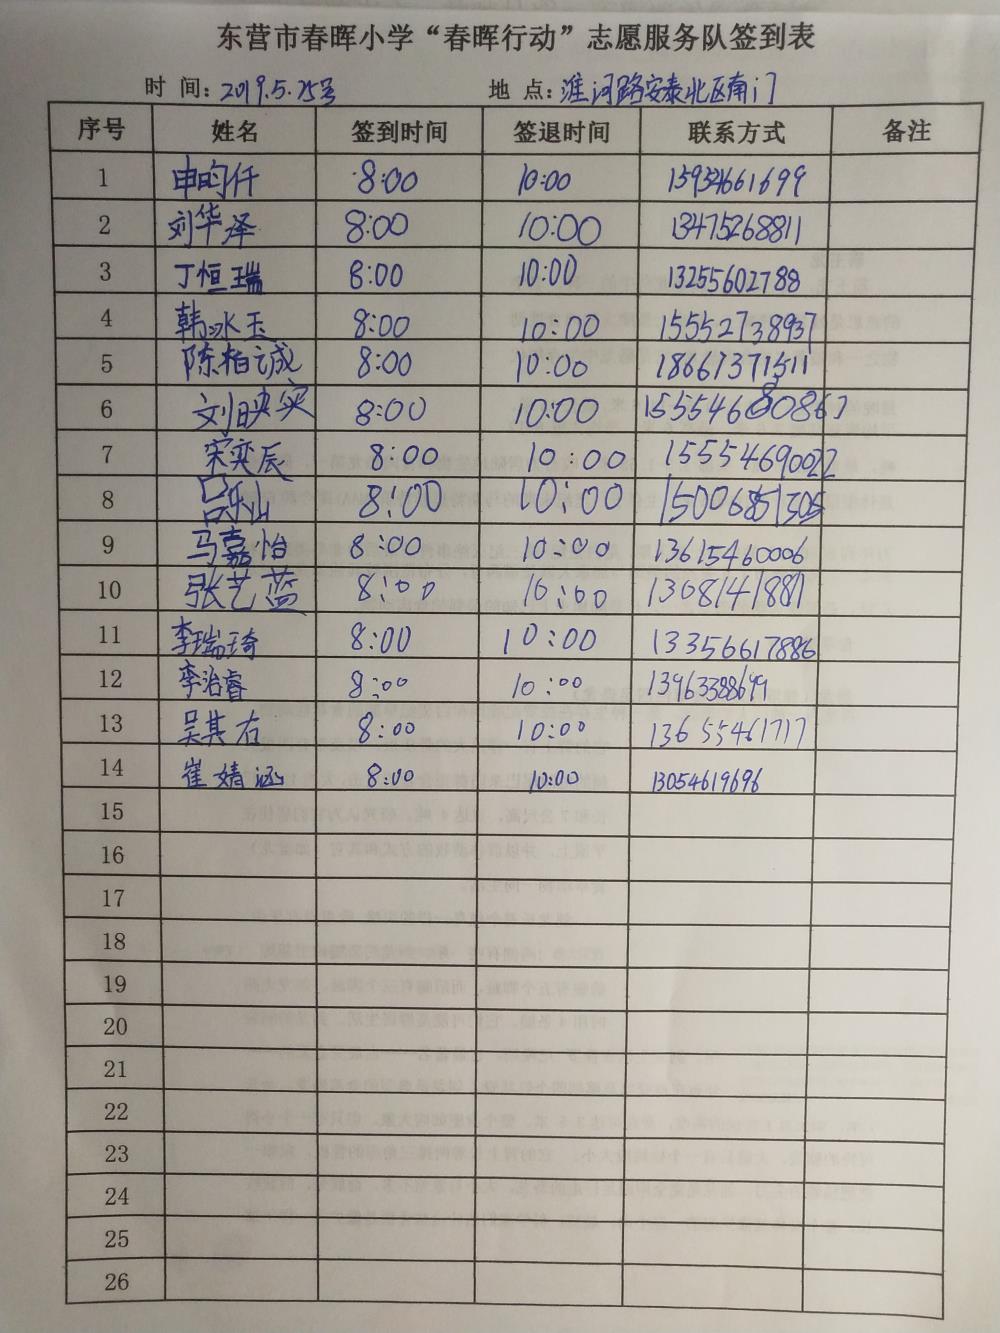 东营市春晖小学“春晖行动”志愿服务队签到表
时 间：2019.5.25号 地 点：淮河路安泰北区南门
序号 姓名 签到时间 签退时间 联系方式 备注
1 申昀仟 8:00 10:00 15954661699
2 刘华泽 8:00 10:00 13475268811
3 丁恒瑞 8:00 10:00 13255602788
4 韩冰玉 8:00 10:00 15552738937
5 陈柏诚 8:00 10:00 18661371511
6 刘映实 8:00 10:00 15554680867
7 宋奕辰 8:00 10:00 15554690022
8 吕乐山 8:00 10:00 15006851305
9 马嘉怡 8:00 10:00 13615460006
10 张艺蓝 8:00 10:00 1308141881
11 李瑞琦 8:00 10:00 13356617886
12 李治睿 8:00 10:00 13963388699
13 吴其右 8:00 10:00 13655461717
14 崔婧涵 8:00 10:00 13054619696
15
16
17
18
19
20
21
22
23
24
25
26